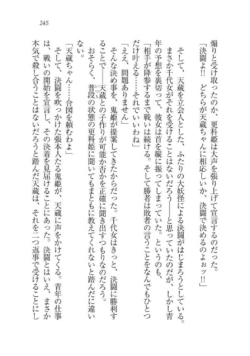 245
煽りと受け取ったのか、更科姫は大声を張り上げて宣言するのだった。
「決闘よ!! どちらが天蔵ちゃんに相応しいか、決闘で決めるのよォッ!!」
そして、天蔵を立会人とした、ふたりの大妖怪による決闘がはじまろうとしている。
まさか千代女がそんな決闘を受けることはないだろうと思っていたのだが、しかし青年の予想を裏切って、彼女は首を縦に振ってしまっていた。というのも、
「相手が降参するまで戦いは続ける。そして勝者は敗者の言うことをなんでもひとつ聞く。それでいいわね」
「ええ、問題ありません」
そんな決め事を、鬼姫が提案してきたからだった。千代女はきっと、決闘に勝利することで、天蔵との子作りの可能か否かを正確に聞き出すつもりなのだろう。
おそらく、普段の更科姫ではまともに教えてくれないと踏んだに違いない。
「天蔵ちゃん……合図を頼むわ」
そして、決闘を吹っかけた張本人たる鬼姫が、天蔵に声をかけてきた。青年の仕事は、戦いの開始を宣言し、その決着を見届けることにあった。決闘とはいえ、まさか本気で殺し合うことはないだろうと踏んだ天蔵は、それを二つ返事で受けることにし